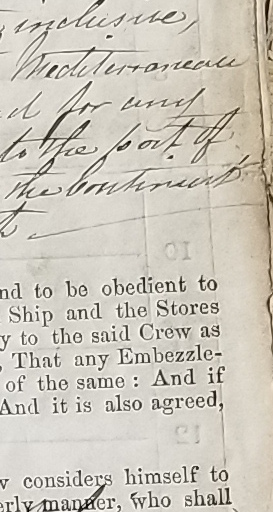 inclusive,
Mediterranean
for any
to the port of
the Continent
nd to be obedient to
Ship and the Stores
y to the said Crew as
, That any Embezzle-
of the same : And if
And it is also agreed,
w considers himself to
erly manner, who shall